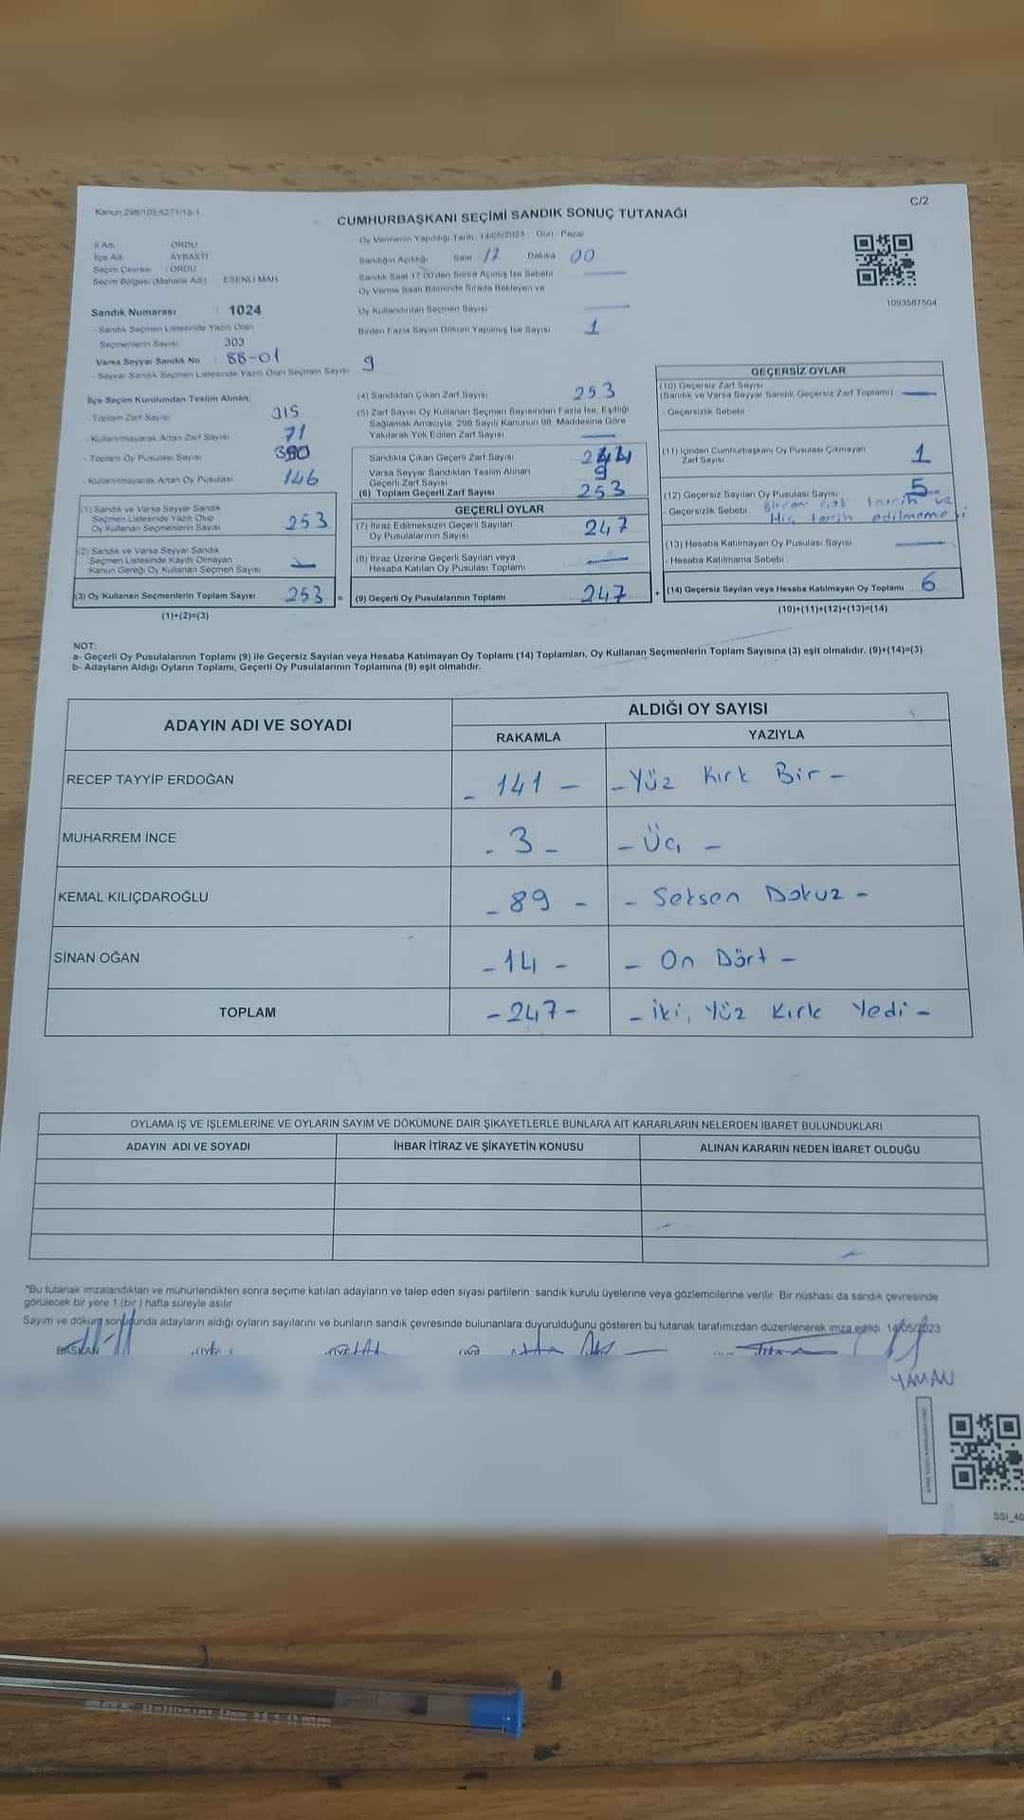 Kanun 298/105,6271/18-1
C/2
CUMHURBAŞKANI SEÇİMİ SANDIK SONUÇ TUTANAĞI
İl Adı : ORDU
İlçe Adı : AYBASTI
Seçim Çevresi : ORDU
Seçim Bölgesi (Mahalle Adı) : ESENLİ MAH.
Sandık Numarası : 1024
- Sandık Seçmen Listesinde Yazılı Olan
Seçmenlerin Sayısı : 303
Varsa Seyyar Sandık No : 88-01
- Seyyar Sandık Seçmen Listesinde Yazılı Olan Seçmen Sayısı 9
İlçe Seçim Kurulundan Teslim Alınan;
- Toplam Zarf Sayısı 315
- Kullanılmayarak Artan Zarf Sayısı 71
- Toplam Oy Pusulası Sayısı
- Kullanılmayarak Artan Oy Pusulası 146
(1) Sandık ve Varsa Seyyar Sandık
Seçmen Listesinde Yazılı Olup
Oy Kullanan Seçmenlerin Sayısı 253
(2) Sandık ve Varsa Seyyar Sandık
Seçmen Listesinde Kayıtlı Olmayan
Kanun Gereği Oy Kullanan Seçmen Sayısı —
(3) Oy Kullanan Seçmenlerin Toplam Sayısı 253 =
(1)+(2)=(3)
Oy Vermenin Yapıldığı Tarih: 14/05/2023 Gün : Pazar
Sandığın Açıldığı Saat 17 Dakika 00
Sandık Saat 17.00'den Sonra Açılmış İse Sebebi —
Oy Verme Saati Bitiminde Sırada Bekleyen ve
Oy Kullandırılan Seçmen Sayısı —
Birden Fazla Sayım Döküm Yapılmış İse Sayısı 1
(4) Sandıktan Çıkan Zarf Sayısı 253
(5) Zarf Sayısı Oy Kullanan Seçmen Sayısından Fazla İse, Eşitliği
Sağlamak Amacıyla, 298 Sayılı Kanunun 98. Maddesine Göre
Yakılarak Yok Edilen Zarf Sayısı —
Sandıkta Çıkan Geçerli Zarf Sayısı 244
Varsa Seyyar Sandıktan Teslim Alınan
Geçerli Zarf Sayısı 9
(6) Toplam Geçerli Zarf Sayısı 253
GEÇERLİ OYLAR
(7) İtiraz Edilmeksizin Geçerli Sayılan
Oy Pusulalarının Sayısı 247
(8) İtiraz Üzerine Geçerli Sayılan veya
Hesaba Katılan Oy Pusulası Toplamı —
(9) Geçerli Oy Pusulalarının Toplamı 247 +
1093587504
GEÇERSİZ OYLAR
(10) Geçersiz Zarf Sayısı
(Sandık ve Varsa Seyyar Sandık Geçersiz Zarf Toplamı) —
- Geçersizlik Sebebi
(11) İçinden Cumhurbaşkanı Oy Pusulası Çıkmayan
Zarf Sayısı 1
(12) Geçersiz Sayılan Oy Pusulası Sayısı 5
- Geçersizlik Sebebi Birden tercih ve
Hiç tercih edilmemesi
(13) Hesaba Katılmayan Oy Pusulası Sayısı —
- Hesaba Katılmama Sebebi
(14) Geçersiz Sayılan veya Hesaba Katılmayan Oy Toplamı 6
(10)+(11)+(12)+(13)=(14)
NOT:
a- Geçerli Oy Pusulalarının Toplamı (9) ile Geçersiz Sayılan veya Hesaba Katılmayan Oy Toplamı (14) Toplamları, Oy Kullanan Seçmenlerin Toplam Sayısına (3) eşit olmalıdır. (9)+(14)=(3)
b- Adayların Aldığı Oyların Toplamı, Geçerli Oy Pusulalarının Toplamına (9) eşit olmalıdır.
ADAYIN ADI VE SOYADI
ALDIĞI OY SAYISI
RAKAMLA YAZIYLA
RECEP TAYYİP ERDOĞAN - 141 - - Yüz Kırk Bir -
MUHARREM İNCE - 3 - - Üç -
KEMAL KILIÇDAROĞLU - 89 - - Seksen Dokuz -
SİNAN OĞAN - 14 - - On Dört -
TOPLAM - 247 - - İki Yüz Kırk Yedi -
OYLAMA İŞ VE İŞLEMLERİNE VE OYLARIN SAYIM VE DÖKÜMÜNE DAİR ŞİKAYETLERLE BUNLARA AİT KARARLARIN NELERDEN İBARET BULUNDUKLARI
ADAYIN ADI VE SOYADI İHBAR İTİRAZ VE ŞİKAYETİN KONUSU ALINAN KARARIN NEDEN İBARET OLDUĞU
*Bu tutanak imzalandıktan ve mühürlendikten sonra seçime katılan adayların ve talep eden siyasi partilerin sandık kurulu üyelerine veya gözlemcilerine verilir. Bir nüshası da sandık çevresinde
görülecek bir yere 1 (bir) hafta süreyle asılır.
Sayım ve döküm sonucunda adayların aldığı oyların sayılarını ve bunların sandık çevresinde bulunanlara duyurulduğunu gösteren bu tutanak tarafımızdan düzenlenerek imza edildi. 14/05/2023
BAŞKAN
YAMAN
SSI_40